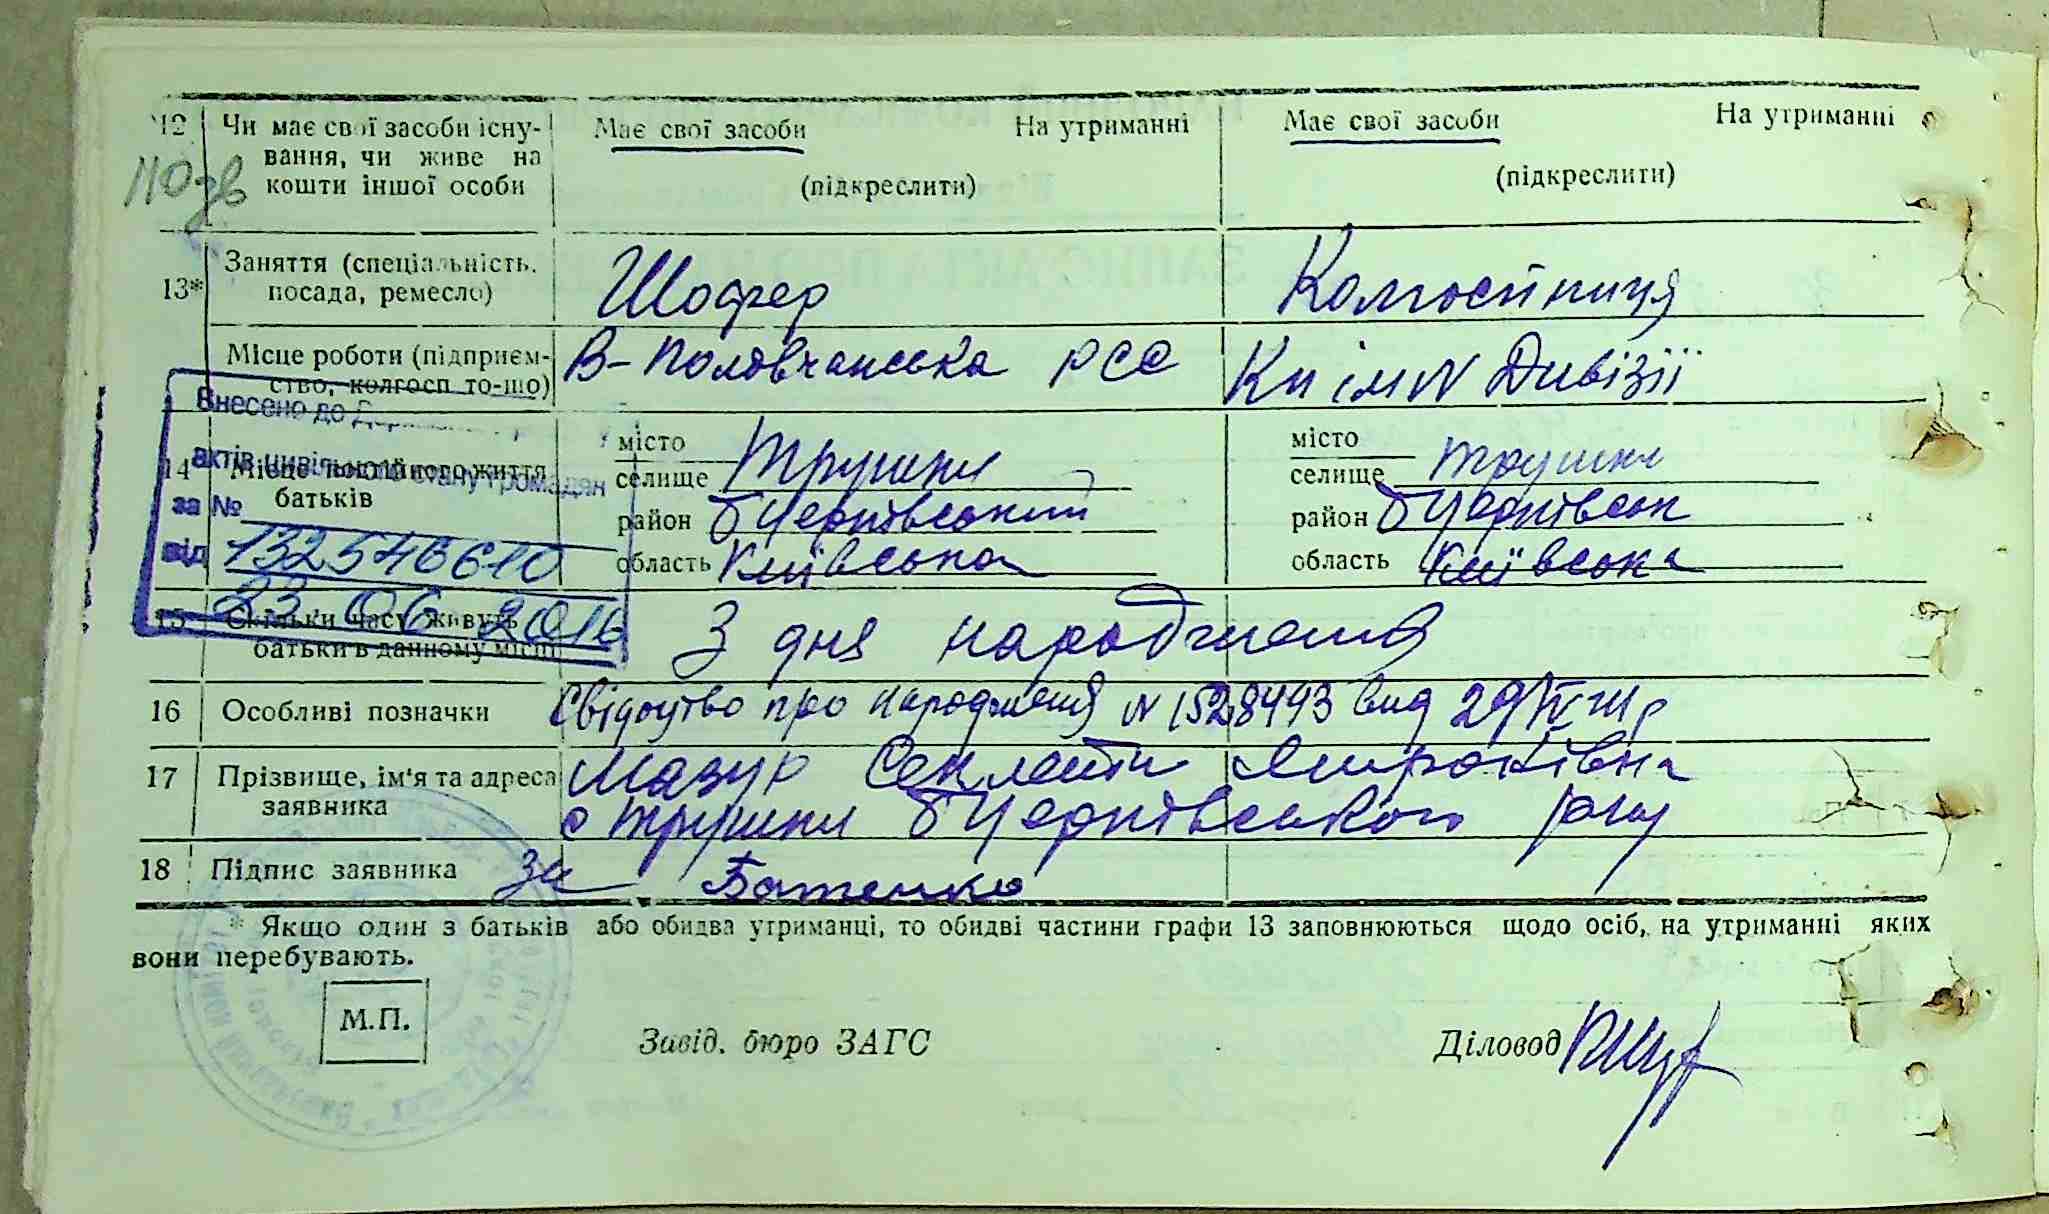 12 Чи має свої засоби існу- Має свої засоби На утриманні Має свої засоби На утриманні
вання, чи живе на
кошти іншої особи (підкреслити) (підкреслити)
13* Заняття (спеціальність, посада, ремесло) Шофер Колгоспниця
Місце роботи (підприєм- В-Половчанська РСС
ство, колгосп то-що) Кп ім N Дивізії
Внесено до
актів цивільного стану громадян
за №
132546610
від
23 06 2016
14 Місце постійного життя
батьків
місто місто
селище Трушки селище Трушки
район БЦерківський район БЦерківськ
область Київська область Київська
15 Скільки часу живуть
батьки в данному місці З дня народження
16 Особливі позначки Свідоцтво про народження N 1528493 вид
17 Прізвище, ім'я та адреса Мазур
заявника с Трушки БЦерківського рну
18 Підпис заявника за Батенко
* Якщо один з батьків або обидва утриманці, то обидві частини графи 13 заповнюються щодо осіб, на утриманні яких
вони перебувають.
М.П.
Завід. бюро ЗАГС Діловод